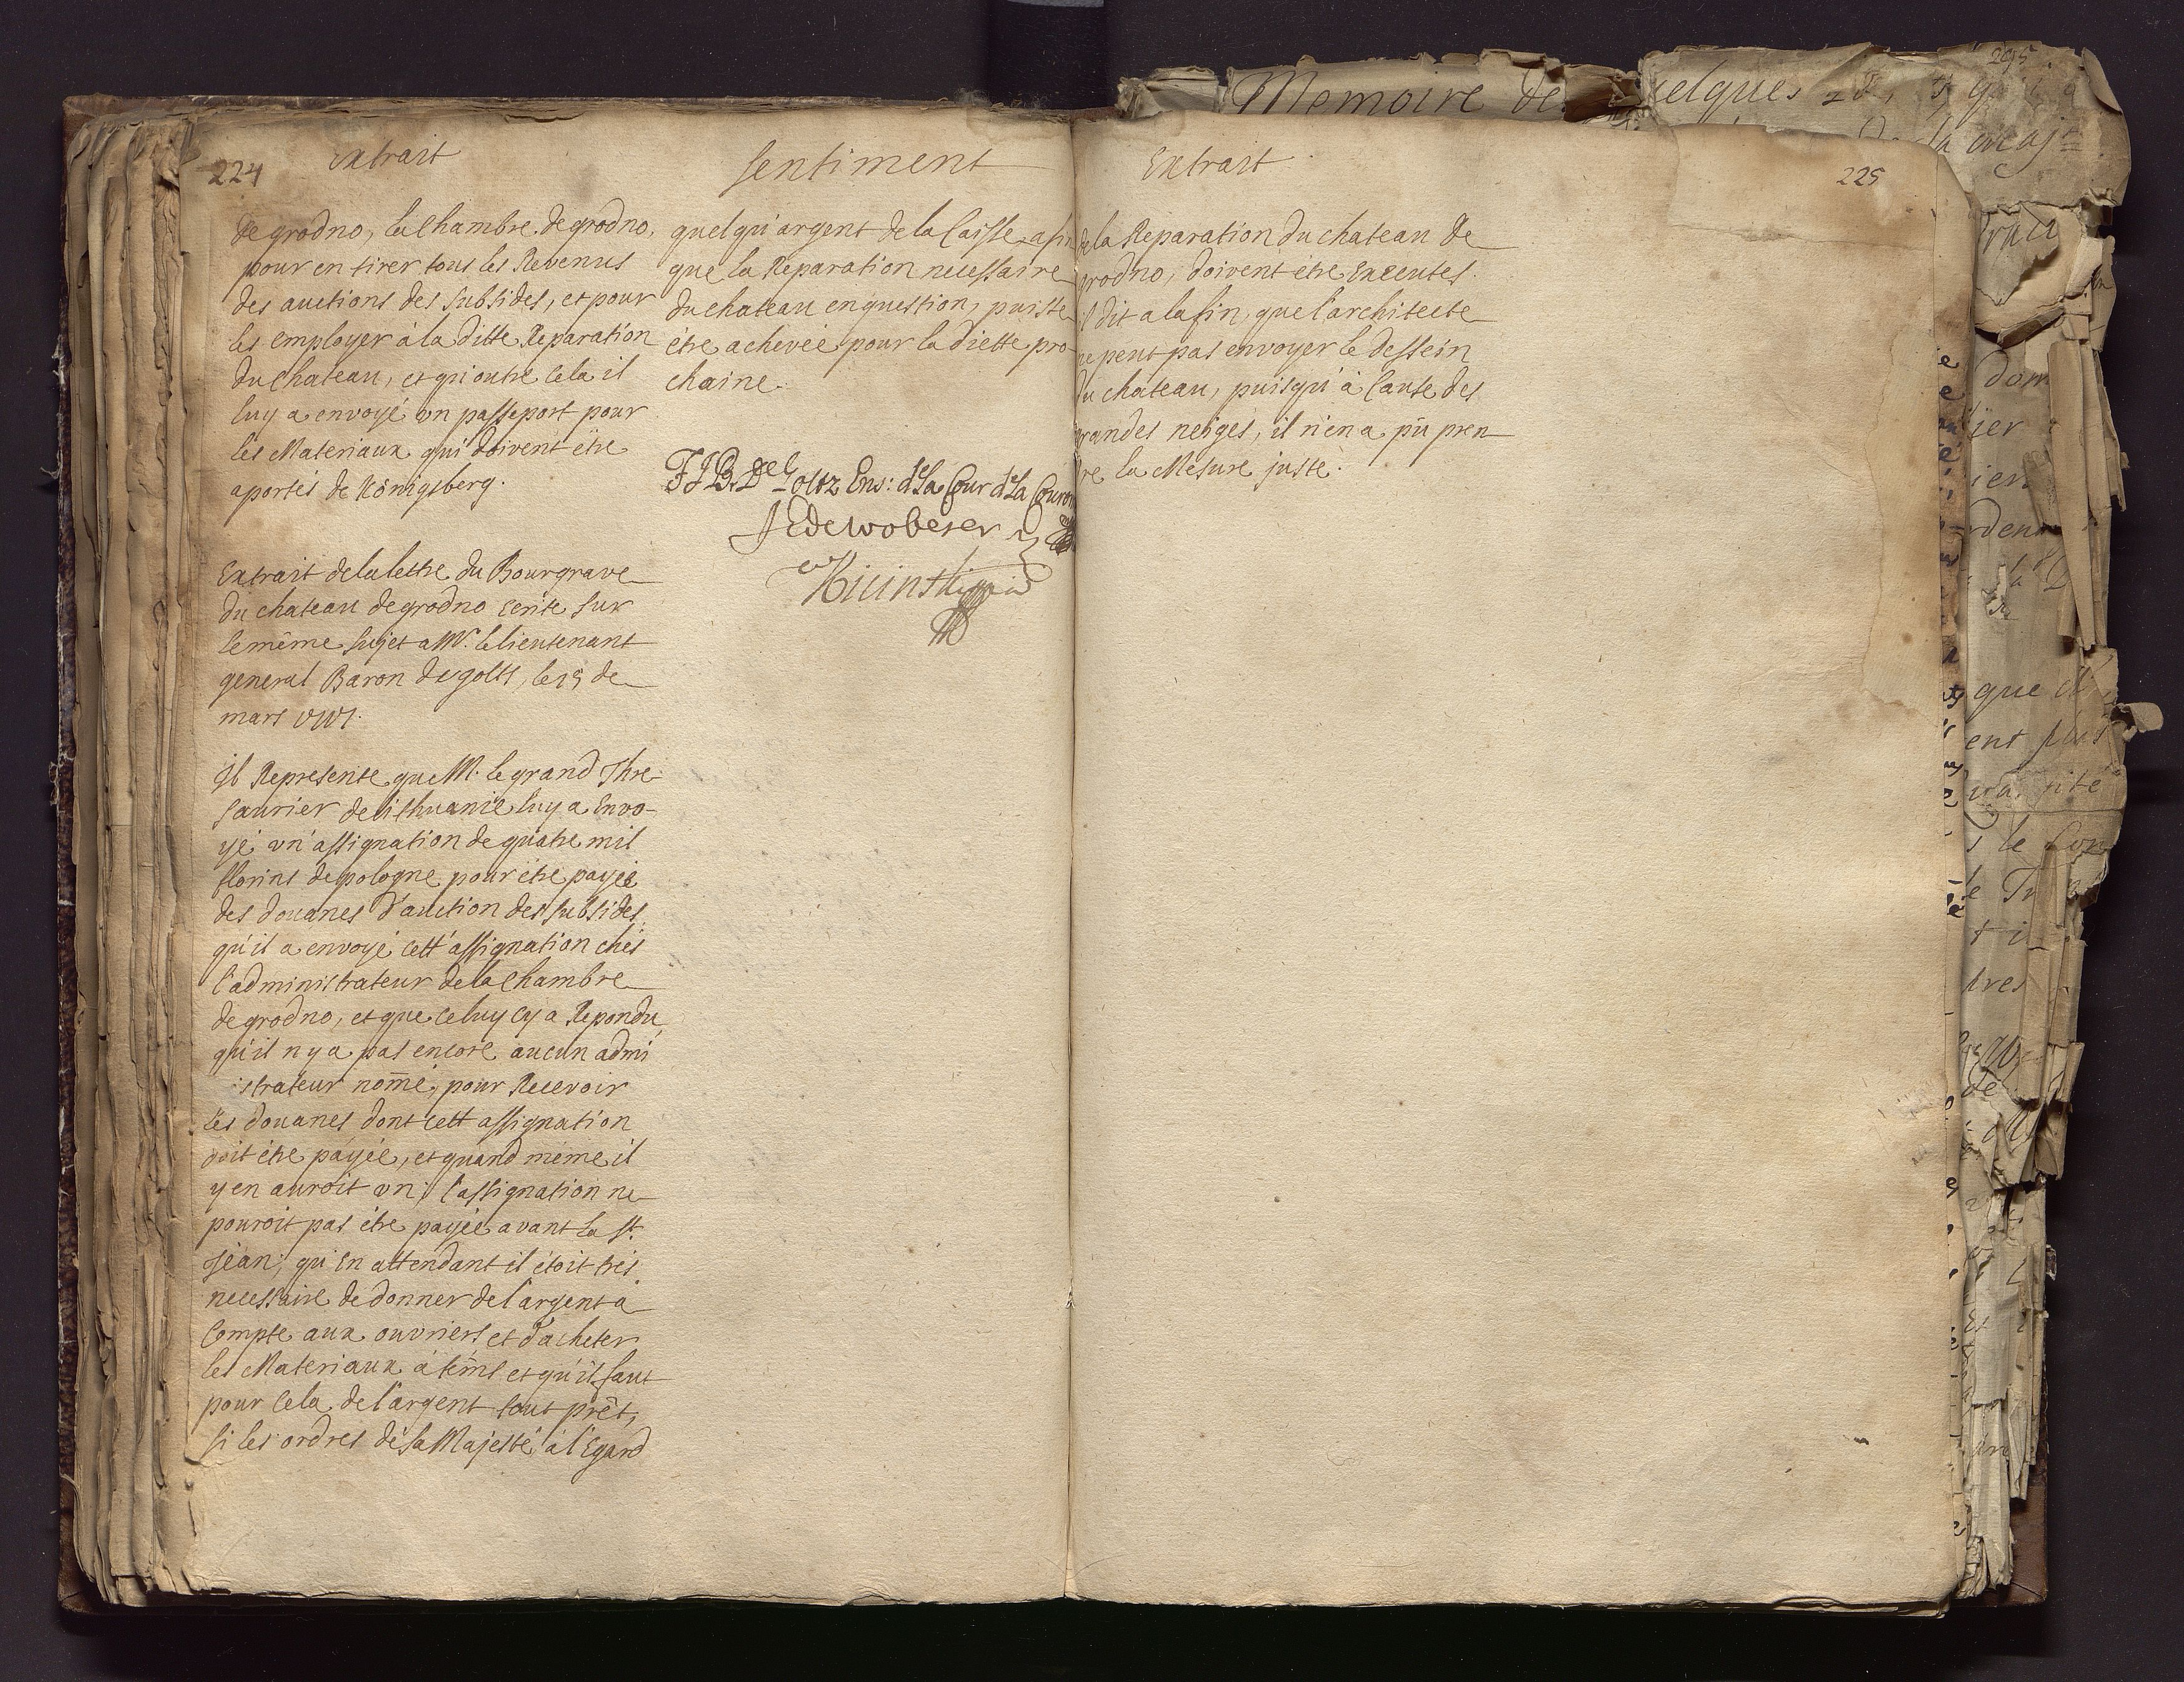 224
Extrait
de grodno, la Chambre de grodno,
pour en tirer tous les Revenus
des auctions des subsides, et pour
les employer à la ditte Reparation
du Chateau, et qu'outre cela il
luy a envoyé un passeport pour
les Materiaux qui doivent être
aportés de Königsberg.
Extrait de la lettre du Bourgrave
du chateau de grodno ecrite sur
le même sujet a Mr. le lieutenant
general Baron de golts, le 15 de
mars
Il Represente que M. le grand Thre-
saurier de lithuanie luy a Envo-
yé un assignation de quatre mil
florins de pologne pour être payée
des douanes d'auction des subsides
qu'il a envoyé cett' assignation chés
l'administrateur de la Chambre
de grodno, et que celuy cy a Repondu
qu'il n'y a pas encore aucun admi
strateur nom̄é, pour Recevoir
les douanes dont cett assignation
doit être payée, et quand même il
y en auroit un, l'assignation ne
pouroit pas être payée avant la St.
Jean, qu'en attendant il étoit trés
necessaire de donner de l'argent a
Compte aux ouvriers et d'acheter
les Materiaux à tem̄s et qu'il faut
pour cela de l'argent tout prêt,
si les ordres de sa Majesté à l'Egard
sentiment
quelqu'argent de la Caisse, afin
que la Reparation necessaire
du chateau en question, puisse
être achevée pour la diette pro-
chaine.
FJB. de Goltz Env: de la Cour de la Couron
de Wobeser
Extrait
225
de la Reparation du chateau de
grodno, doivent être Executés.
il dit a la fin, que l'architecte
ne peut pas envoyer le dessein
du chateau, puisqu'à Cause des
grandes neiges, il n'en a pû pren
re la Mesure juste.
295
Memoire de quelques